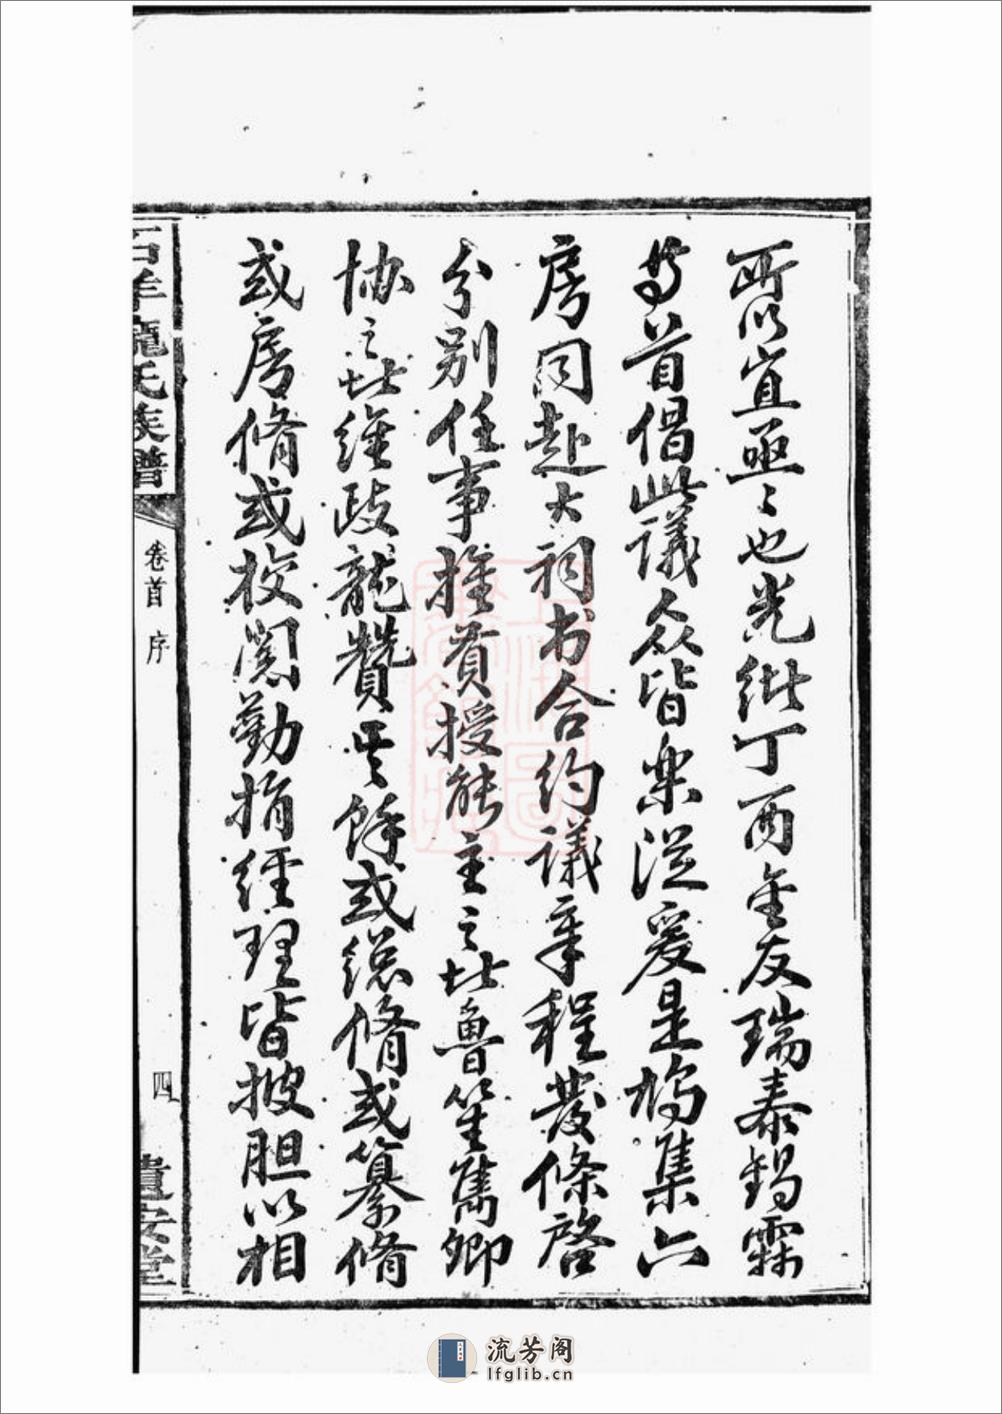 所以宜亟々也光緒丁酉金友瑞泰錫霖
等首倡此議众皆樂從爰是鳩集六
房同赴大祠书合約議章程發條啓
分别任事推賁授能主之些魯笙雋卿
协之些維歧龍贊其餘或總脩或纂脩
或房脩或校閱勸捐經理皆披胆以相
石羊龐氏族譜
卷首 序
四
貴安堂
流芳阁
lfglib.cn